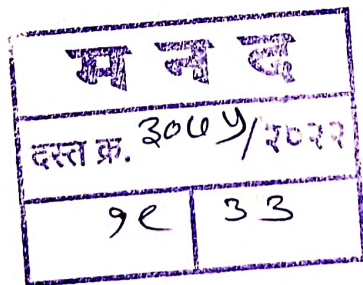 म न द
दस्त क्र. ३०७५/२०२२
१९ ३३